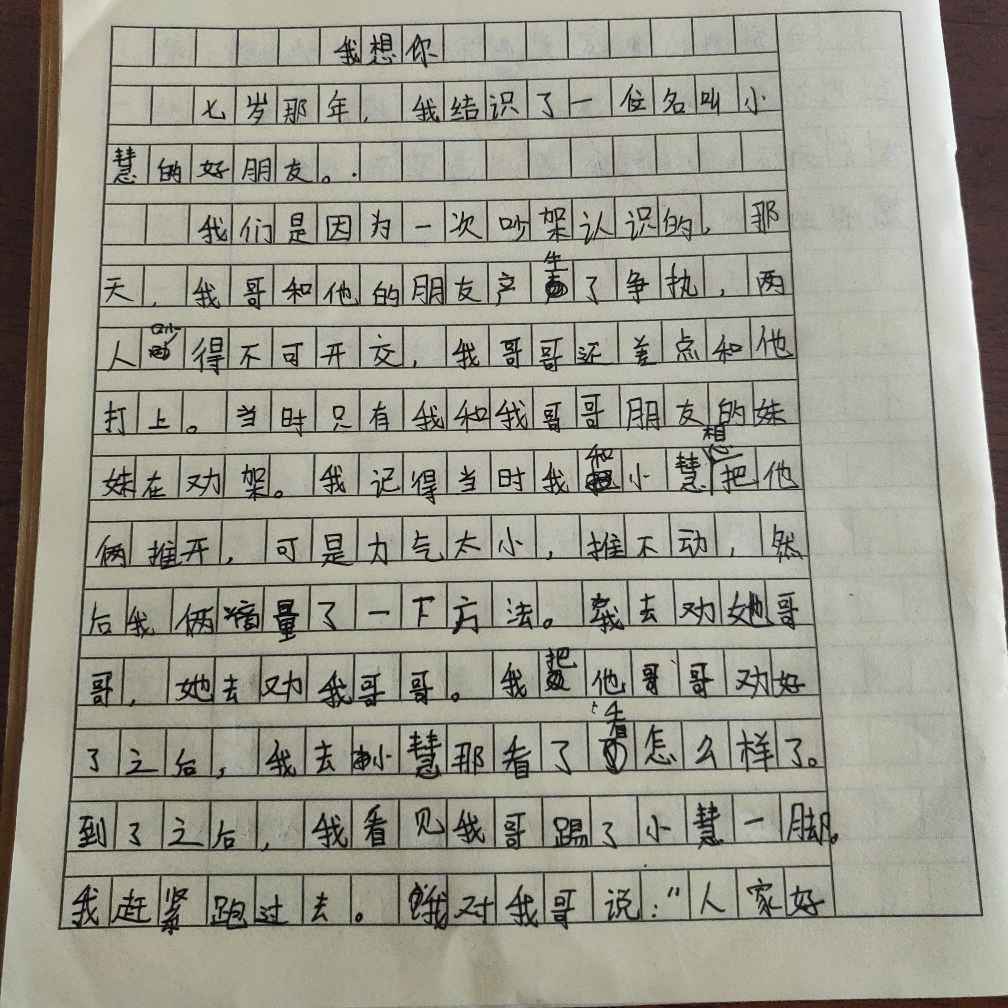 我想你
七岁那年，我结识了一位名叫小
慧的好朋友。
我们是因为一次吵架认识的，那
天，我哥和他的朋友产生了争执，两
人吵得不可开交，我哥哥还差点和他
打上。当时只有我和我哥哥朋友的妹
妹在劝架。我记得当时我和小慧想把他
俩推开，可是力气太小，推不动，然
后我俩商量了一下方法。我去劝她哥
哥，她去劝我哥哥。我把他哥哥劝好
了之后，我去小慧那看了看怎么样了。
到了之后，我看见我哥踢了小慧一脚。
我赶紧跑过去。我对我哥说：“人家好